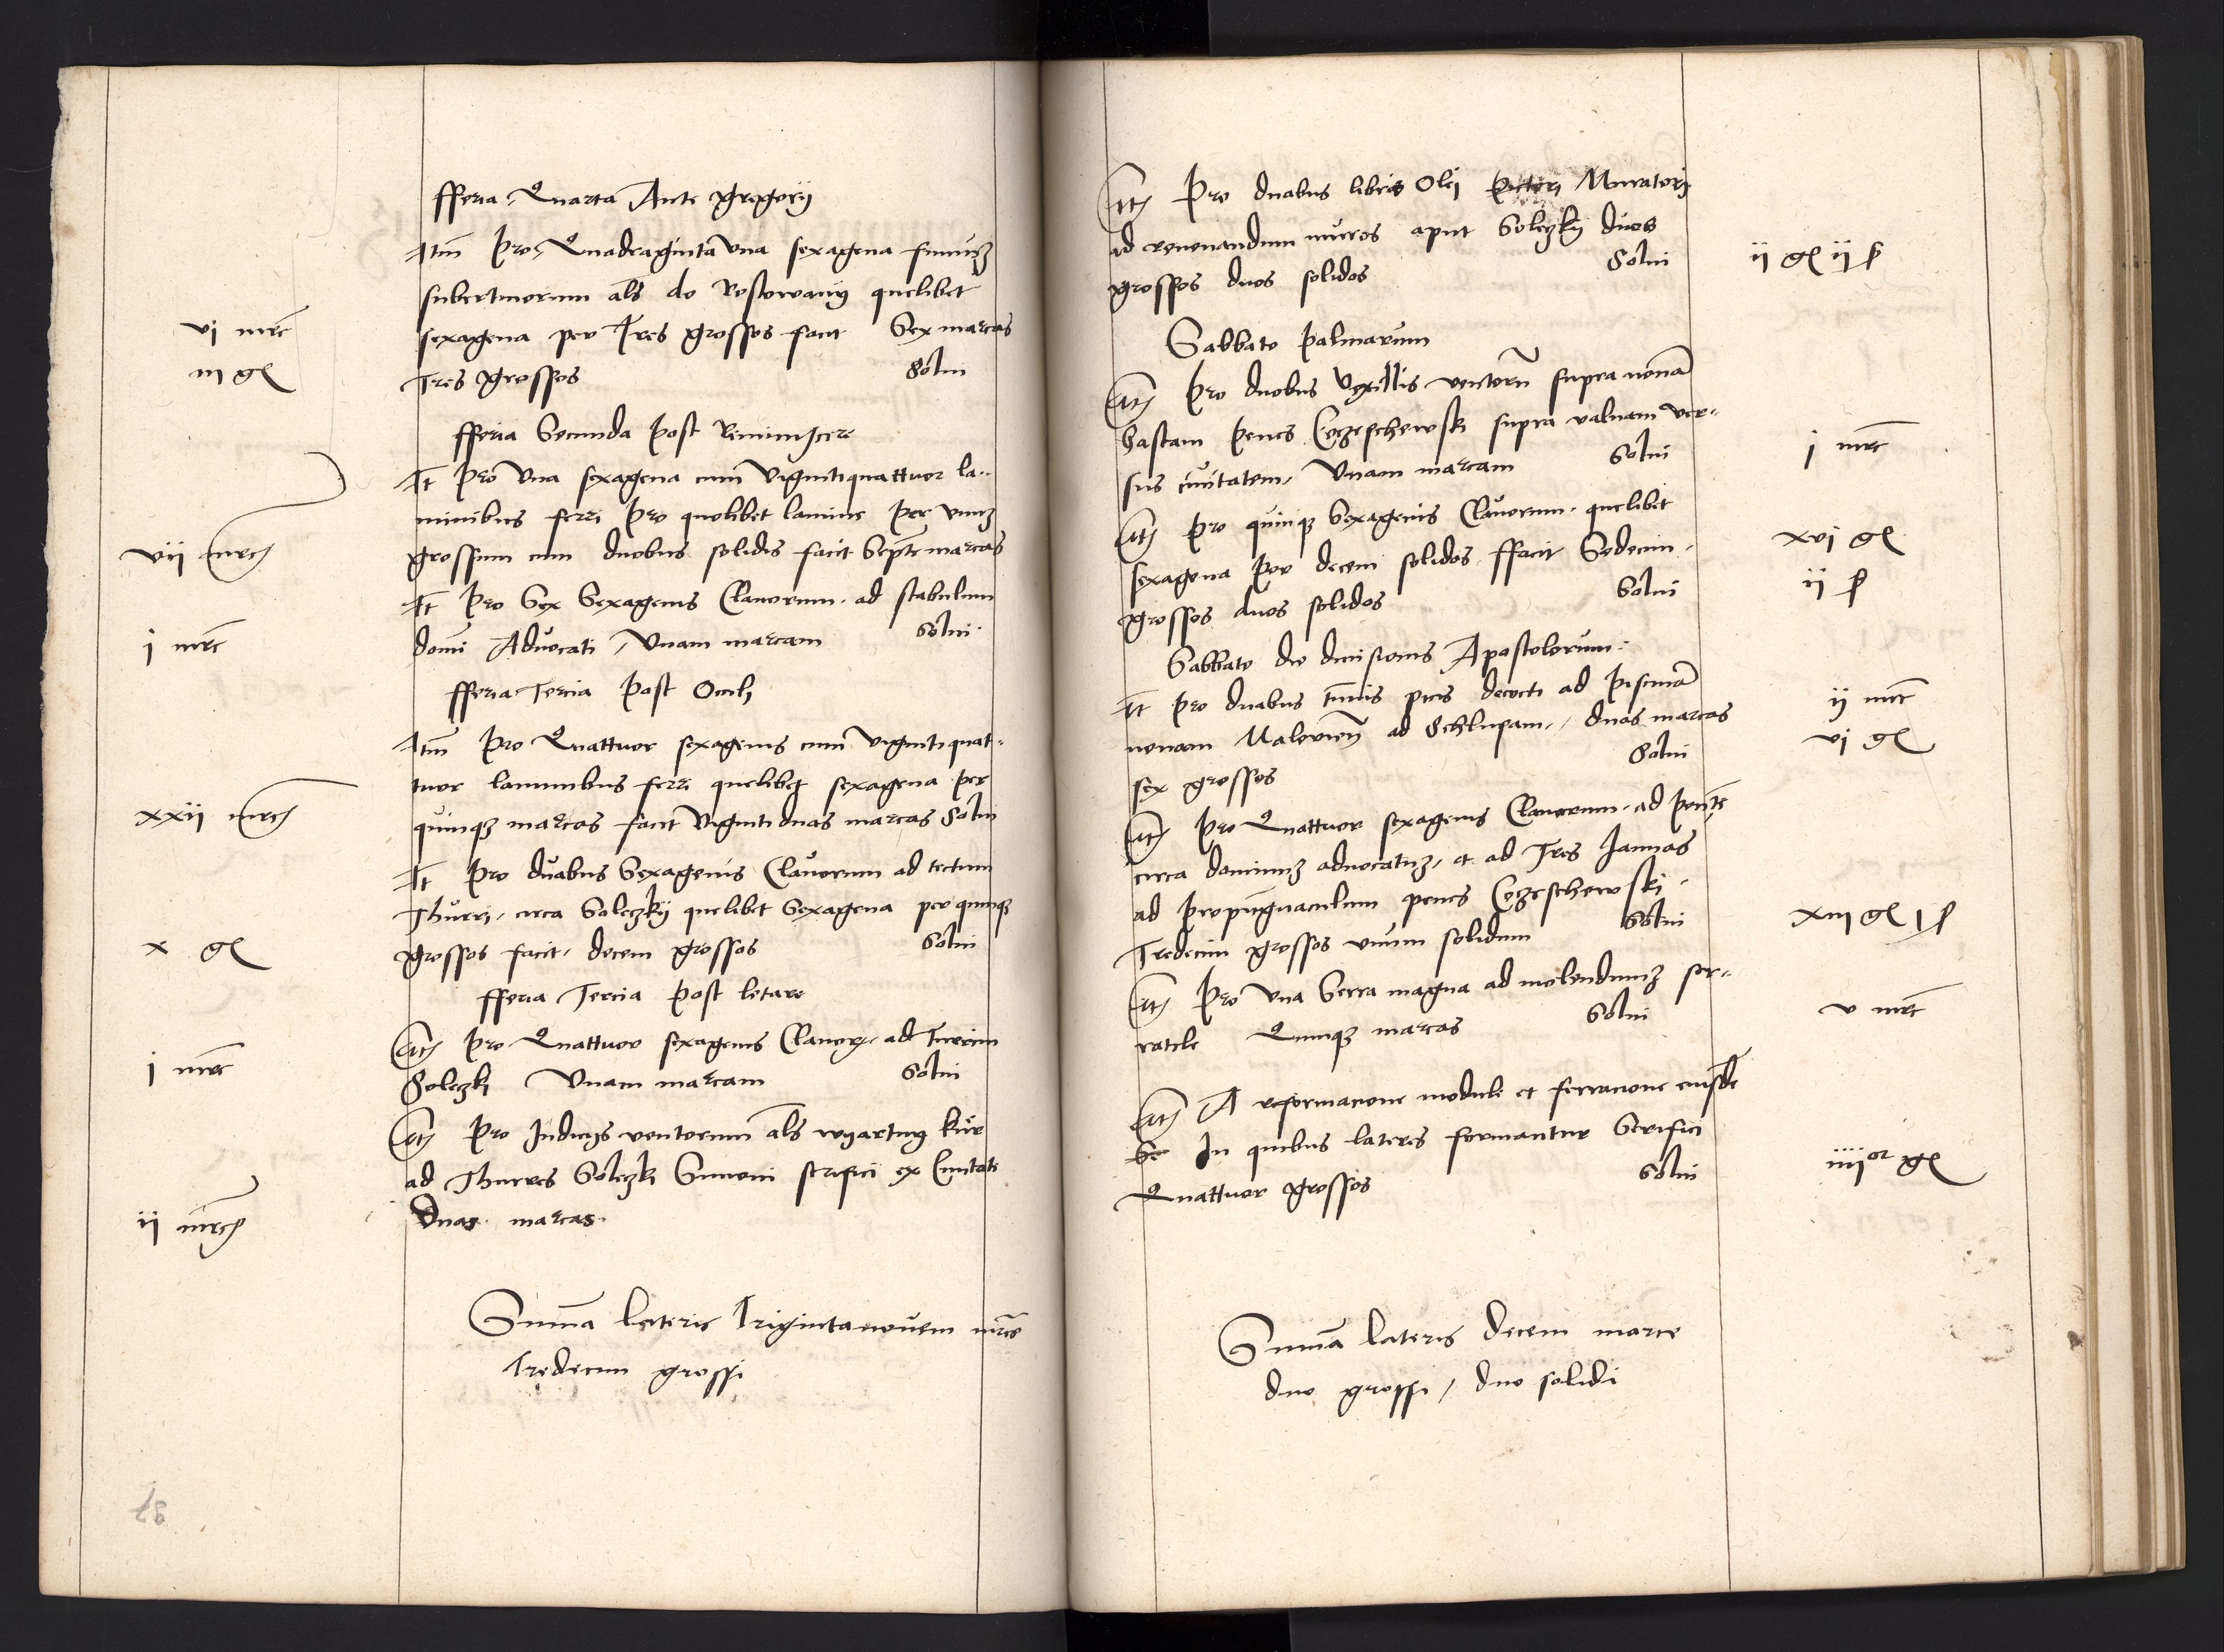 fferia Quarta Ante gregorij
Itm Pro Quadraginta vna sexagena funiu3
subertinorum als do Rostowanij quelibet
vi mrc sexagena per Tres grossos facit Sex marcas
iii gl Tres grossos Solui
fferia Secunda Post Reminiscere
It Pro vna sexagena cum vigintiquattuor la-
minibus ferri Pro quolibet lamine Per vnu3
vii mrc grossum cum duobus solidis facit Septe marcas
It Pro Sex Sexagenis Clauorum ad stabulum
i mrc domi Aduocati / Vnam marcam Solui
fferia Tercia Post Oculi
Itm Pro Quattuor sexagenis cum vigintiquat-
tuor laminibus ferri quelibet sexagena per
xxii mrc quinq3 marcas facit viginti duas marcas Solui
It Pro duabus Sexagenis Clauorum ad tectum
Thurri circa Soleczkij quelibet Sexagena per quinq3
x gl grossos facit decem grossos Solui
fferia Tercia Post letare
It Pro Quattuor sexagenis Clauor ad Turrim
i mrc Soleczki Vnam marcam Solui
It Pro Indicijs ventorum als wyartny kur
ad Thurres Soleczki Simoni serifici ex Ciuitate
ii mrc Duas marcas
Summa lateris Trigintanouem mrce
Tredecim grossi
37
It Pro duabus libris Olej Pictori Muratori
ad renouandum muros aput Soleczkij duos
grossos duos solidos Solui ii gl ii ß
Sabbato Palmarum
It Pro duobus Vexillis ventoru supra nouam
Bastam Penes Czeschewski supra valuam ver-
sus ciuitatem Vnam marcam Solui i mrc
It Pro quinq3 Sexagenis Clauorum quelibet
sexagena Per decem solidos ffacit Sedecim xvi gl
grossos duos solidos Solui ii ß
Sabbato die diuisionis Apostolorum
It Pro duabus tunnis picis decocti ad Piscina
nouam ad Schlupam duas marcas ii mrc
sex grossos Solui vi gl
It Pro Quattuor sexagenis Clauorum ad Ponte
circa dominu3 aduocatu3 et ad Tres Januas
ad Propugnaculum penes Czeschewski
Tredecim grossos vnum solidum Solui xiii gl i ß
It Pro vna Serra magna ad molendinu3 ser-
ratile Quinq3 marcas Solui v mrc
It A reformacione moduli et ferracione eiusde
In quibus lateres formantur Serifici
Quattuor grossos Solui iiii or gl
Summa lateris Decem marce
duo grossi / duo solidi